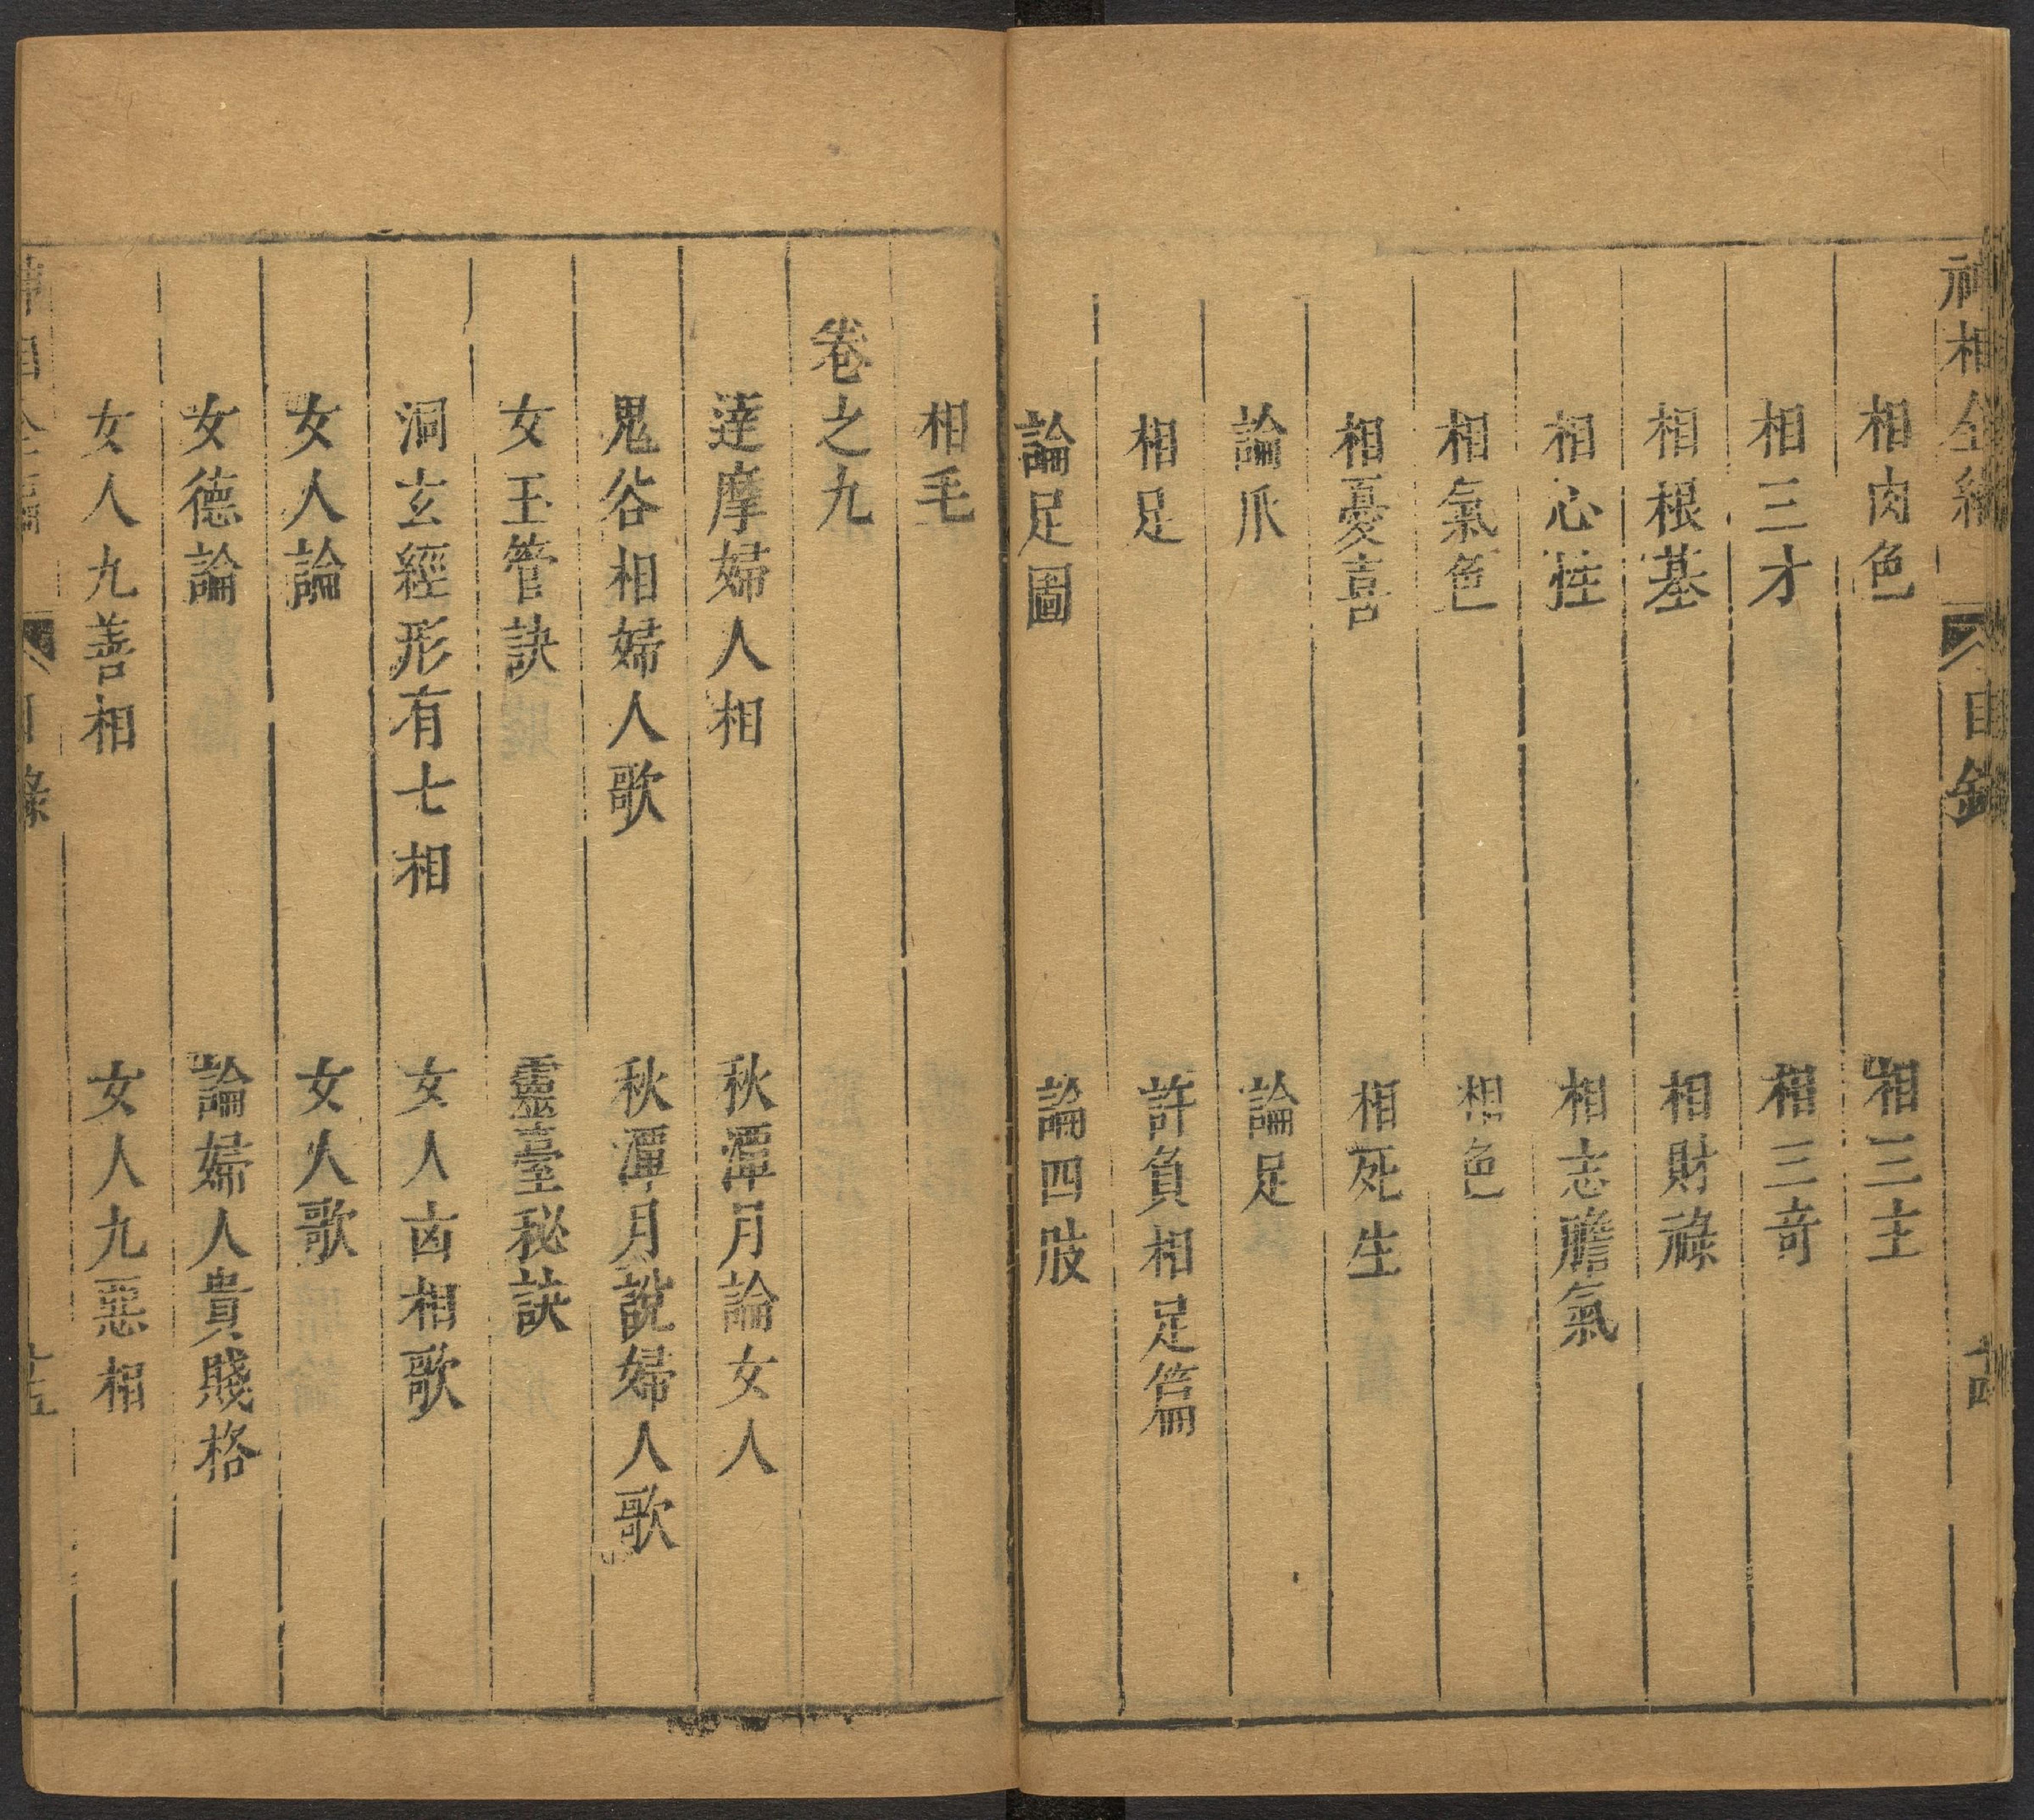 神相全編 目錄 十四
相肉色 相三主
相三才 相三奇
相根基 相財祿
相心性 相志膽氣
相氣色 相色
相憂喜 相死生
論爪 論足
相足 許負相足篇
論足圖 論四肢
相毛
卷之九
達摩婦人相 秋潭月論女人
鬼谷相婦人歌 秋潭月說婦人歌
女玉管訣 靈臺秘訣
洞玄經形有七相 女人凶相歌
女人論 女人歌
女德論 論婦人貴賤格
女人九善相 女人九惡相
神相全編 目錄 十五